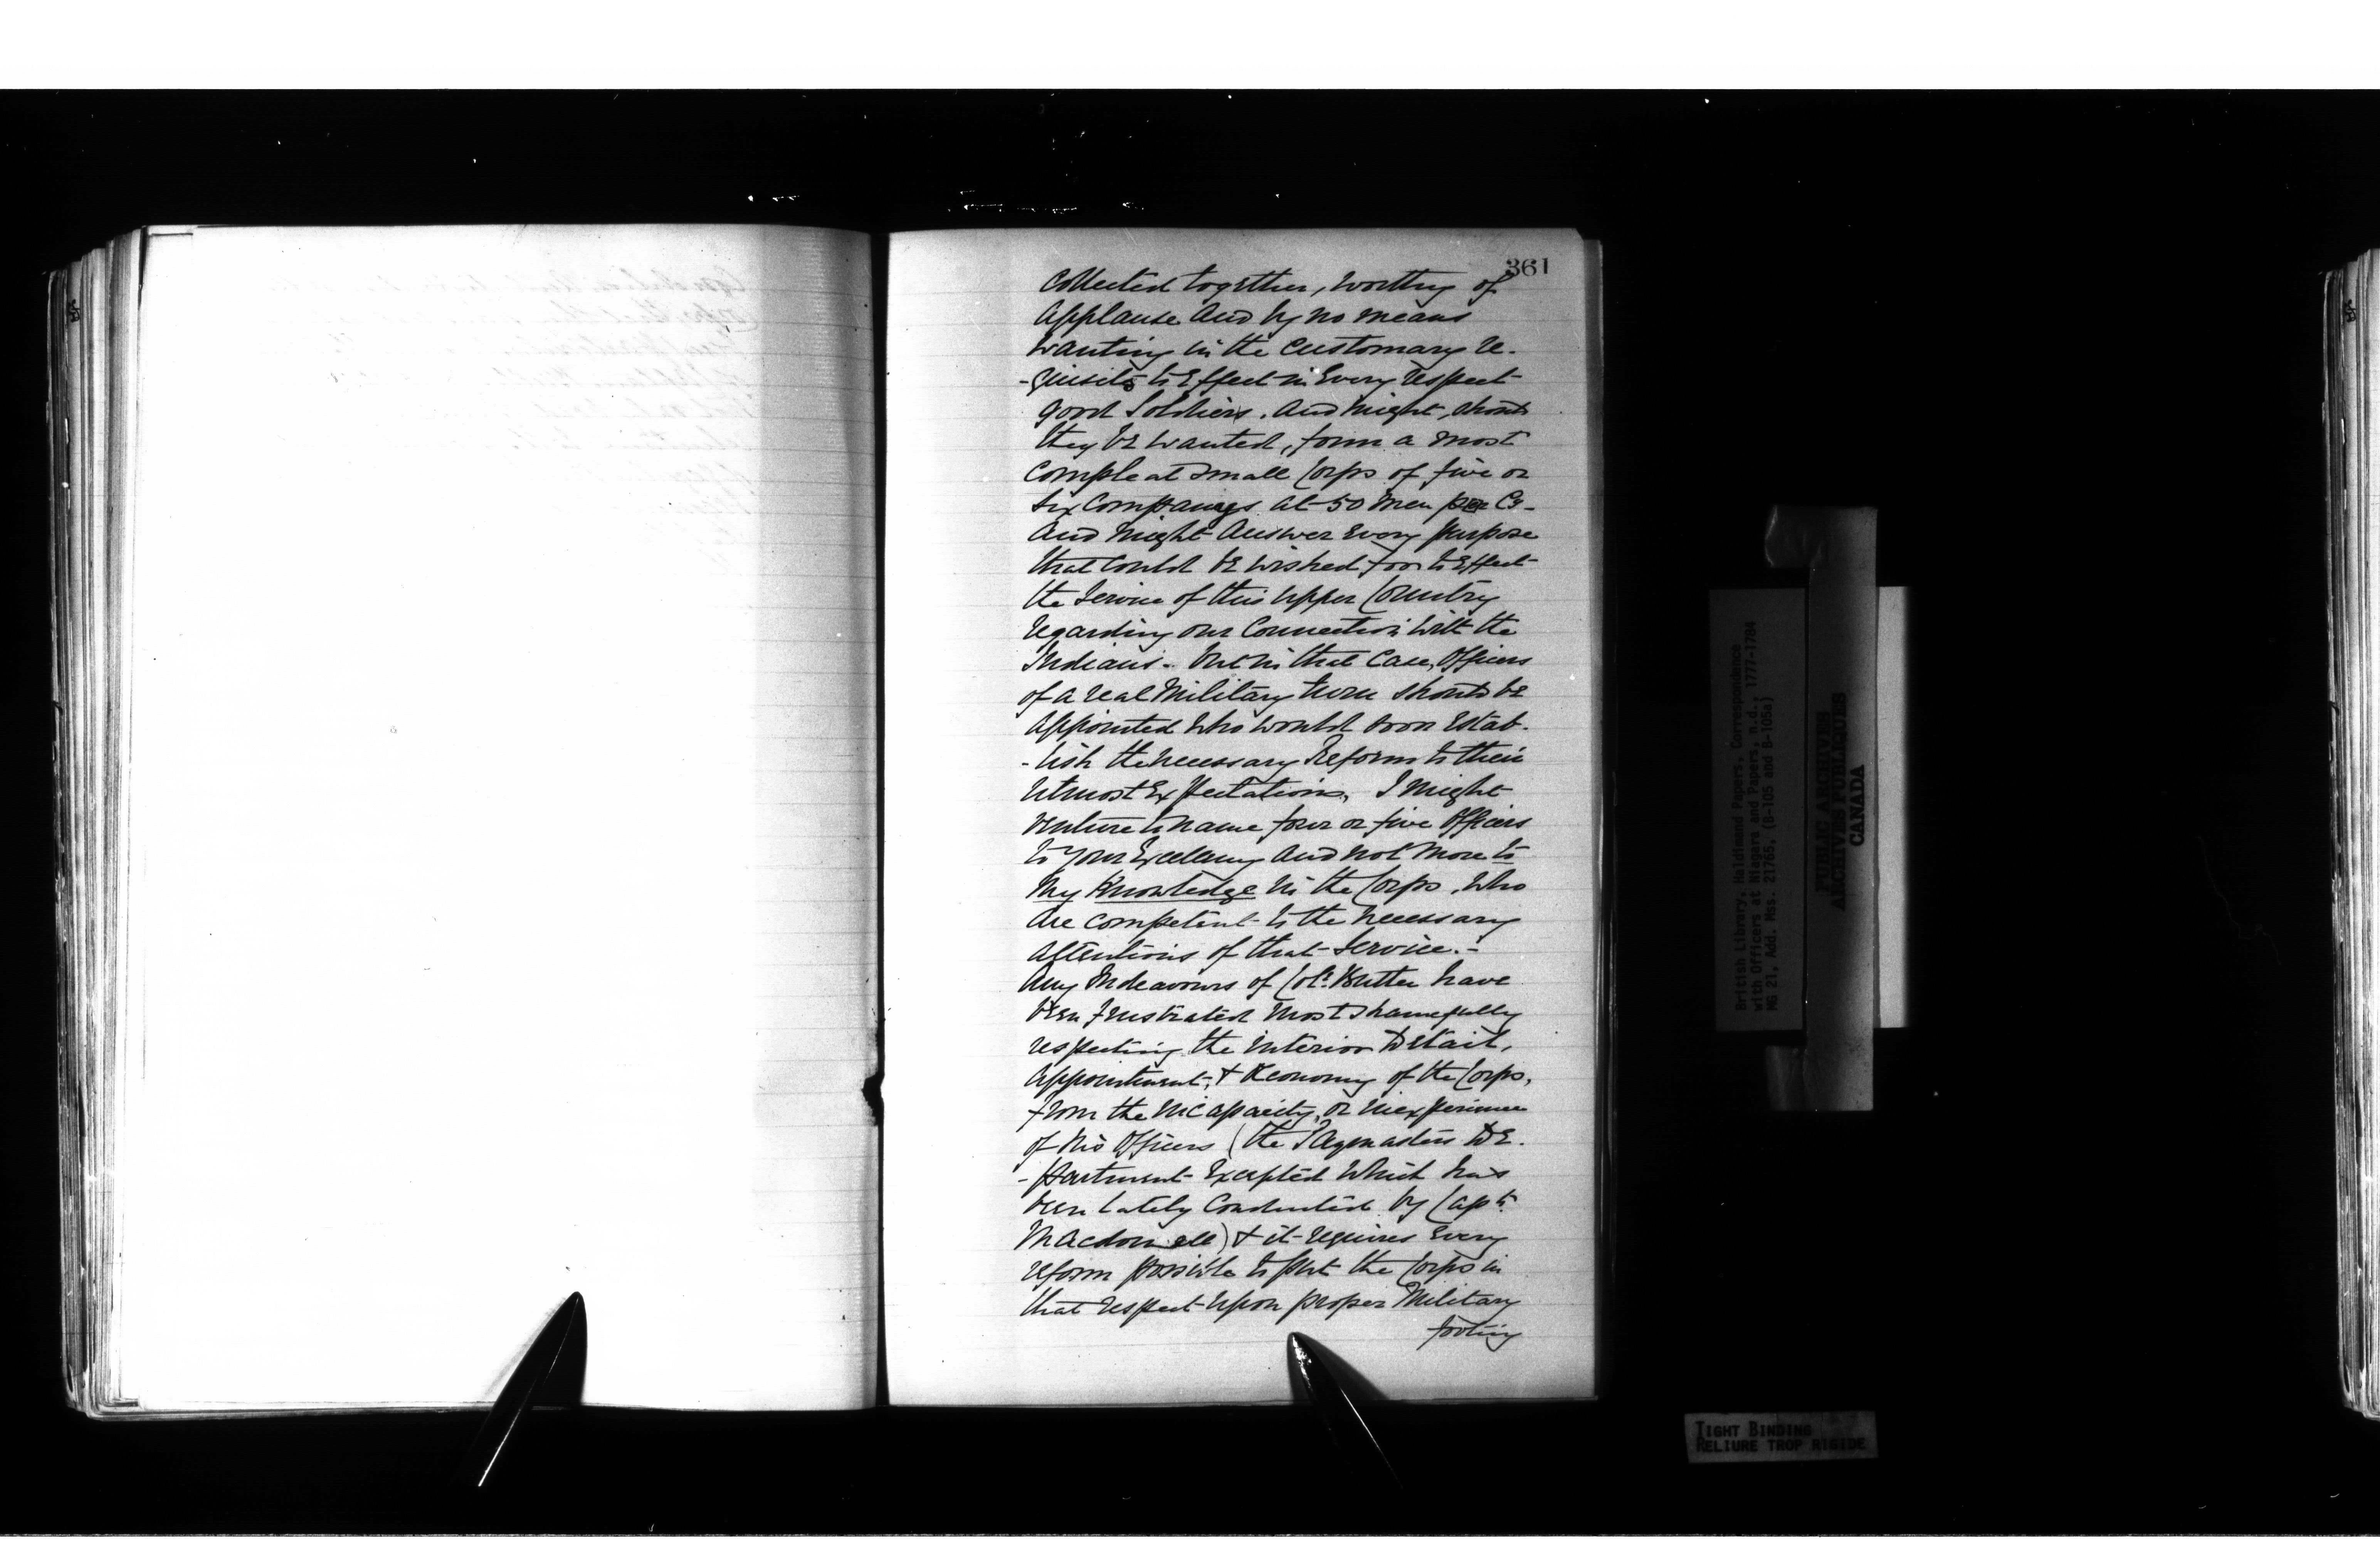 361
Collected together, worthy of
applause and by no means
wanting in the customary re-
-quisits to Effect in Every respect
good Soldiers. And might, should
they be wanted, form a most
compleat small Corps of five or
six Companys at 50 Men per Co-
And might Answer Every purpose
that could be wished for to Effect
the Service of this upper Country
regarding our Connection with the
Indians - but in that Case, Officers
of a real Military turn should be
appointed who would soon Estab-
-lish the necessary Reform to their
utmost Expectations, I might
venture to name four or five Officers
to Your Excellency and not more to
my knowledge in the Corps, who
are competent to the necessary
attentions of that Service.-
Any Endeavours of Col: Butler have
been frustrated most shamefully
respecting the interior Detail,
appointment, & Œconomy of the Corps,
from the incapacity, or inexperience
of his Officers (the Paymasters De-
-partment Excepted which has
been lately Conducted by Capt.
Macdonell) & it requires Every
reform possible to put the Corps in
that respect upon proper Military
footing
British Library, Haldimand Papers, Correspondence
with Officers at Niagara and Papers, n.d., 1777-1784
MG 21, Add. Mss. 21765, (B-105 and B-105a)
PUBLIC ARCHIVES
ARCHIVES PUBLIQUES
CANADA
TIGHT BINDING
RELIURE TROP RIGIDE